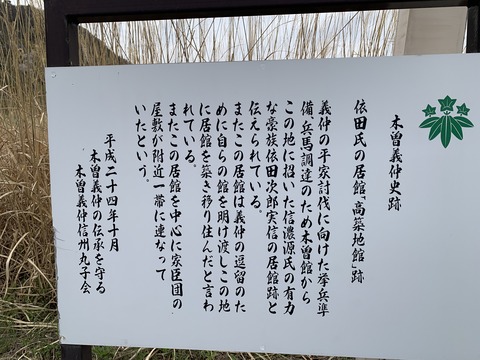 木曽義仲史跡
依田氏の居館「高築地館」跡
義仲の平家討伐に向けた挙兵準
備兵馬調達のため木曽館から
この地に招いた信濃源氏の有力
な豪族依田次郎実信の居館跡と
伝えられている。
またこの居館は義仲の逗留のた
めに自らの館を明け渡しこの地
に居館を築き移り住んだと言わ
れている。
またこの居館を中心に家臣団の
屋敷が附近一帯に連なって
いたという。
平成二十四年十月
木曽義仲の伝承を守る
木曽義仲信州丸子会